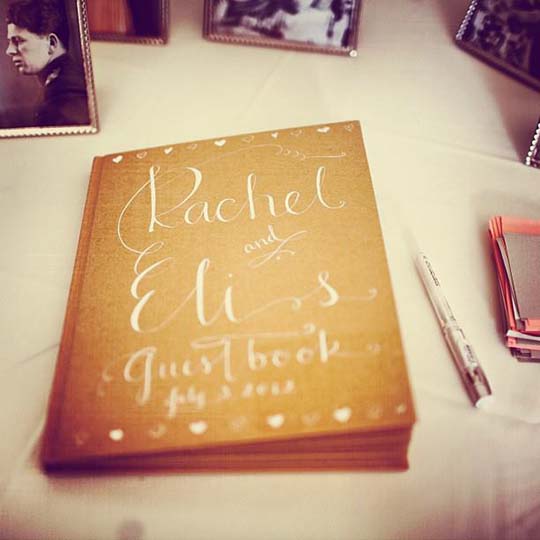 Rachel
and
Elis
guestbook
July 2012